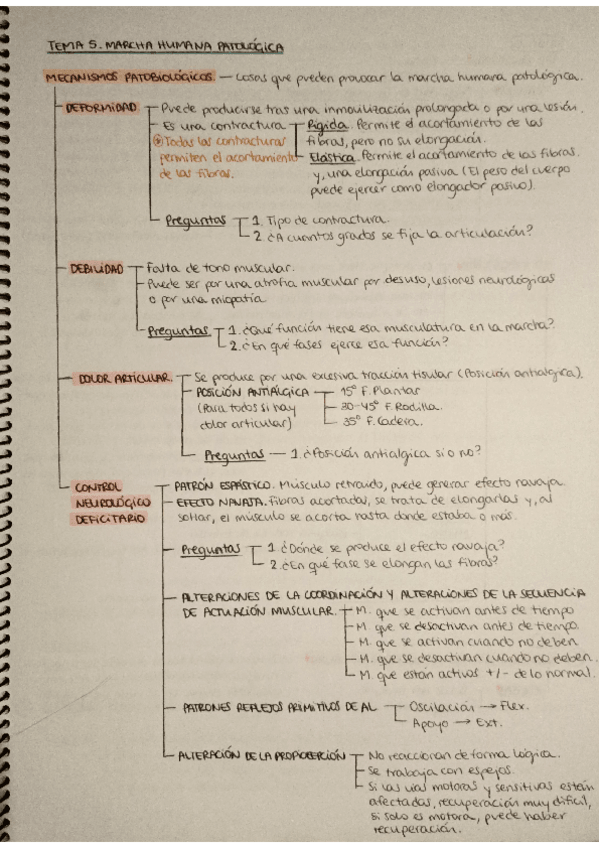 TEMA 5. MARCHA HUMANA PATOLÓGICA
MECANISMOS PATOBIOLÓGICOS — Cosas que pueden provocar la marcha humana patológica.
DEFORMIDAD
Puede producirse tras una inmovilización prolongada o por una lesión.
Es una contractura
Rígida. Permite el acortamiento de las fibras, pero no su elongación.
Elástica. Permite el acortamiento de las fibras. y, una elongación pasiva (El peso del cuerpo puede ejercer como elongador pasivo).
Todas las contracturas
permiten el acortamiento
de las fibras.
Preguntas
1. Tipo de contractura.
2. ¿A cuántos grados se fija la articulación?
DEBILIDAD
Falta de tono muscular.
Puede ser por una atrofia muscular por desuso, lesiones neurológicas
o por una miopatía.
Preguntas
1. ¿Qué función tiene esa musculatura en la marcha?
2. ¿En qué fases ejerce esa función?
DOLOR ARTICULAR.
Se produce por una excesiva tracción tisular (Posición antialgica).
POSICIÓN ANTIÁLGICA
(Para todos si hay
dolor articular)
15º F. Plantar
30-45º F. Rodilla.
35º F. Cadera.
Preguntas — 1. ¿Posición antialgica si o no?
CONTROL
NEUROLÓGICO
DEFICITARIO
PATRÓN ESPÁSTICO. Músculo retraído, puede generar efecto navaja.
EFECTO NAVAJA. Fibras acortadas, se trata de elongarlas y, al
soltar, el músculo se acorta hasta donde estaba o más.
Preguntas
1. ¿Dónde se produce el efecto navaja?
2. ¿En qué fase se elongan las fibras?
ALTERACIONES DE LA COORDINACIÓN Y ALTERACIONES DE LA SECUENCIA
DE ACTUACIÓN MUSCULAR.
M. que se activan antes de tiempo
M. que se desactivan antes de tiempo.
M. que se activan cuando no deben
M. que se desactivan cuando no deben.
M. que están activos +/- de lo normal.
PATRONES REFLEJOS PRIMITIVOS DE AL
Oscilación → Flex.
Apoyo → Ext.
ALTERACIÓN DE LA PROPIOCEPCIÓN
No reaccionan de forma lógica.
Se trabaja con espejos.
Si las vías motoras y sensitivas están
afectadas, recuperación muy difícil,
si solo es motora, puede haber
recuperación.